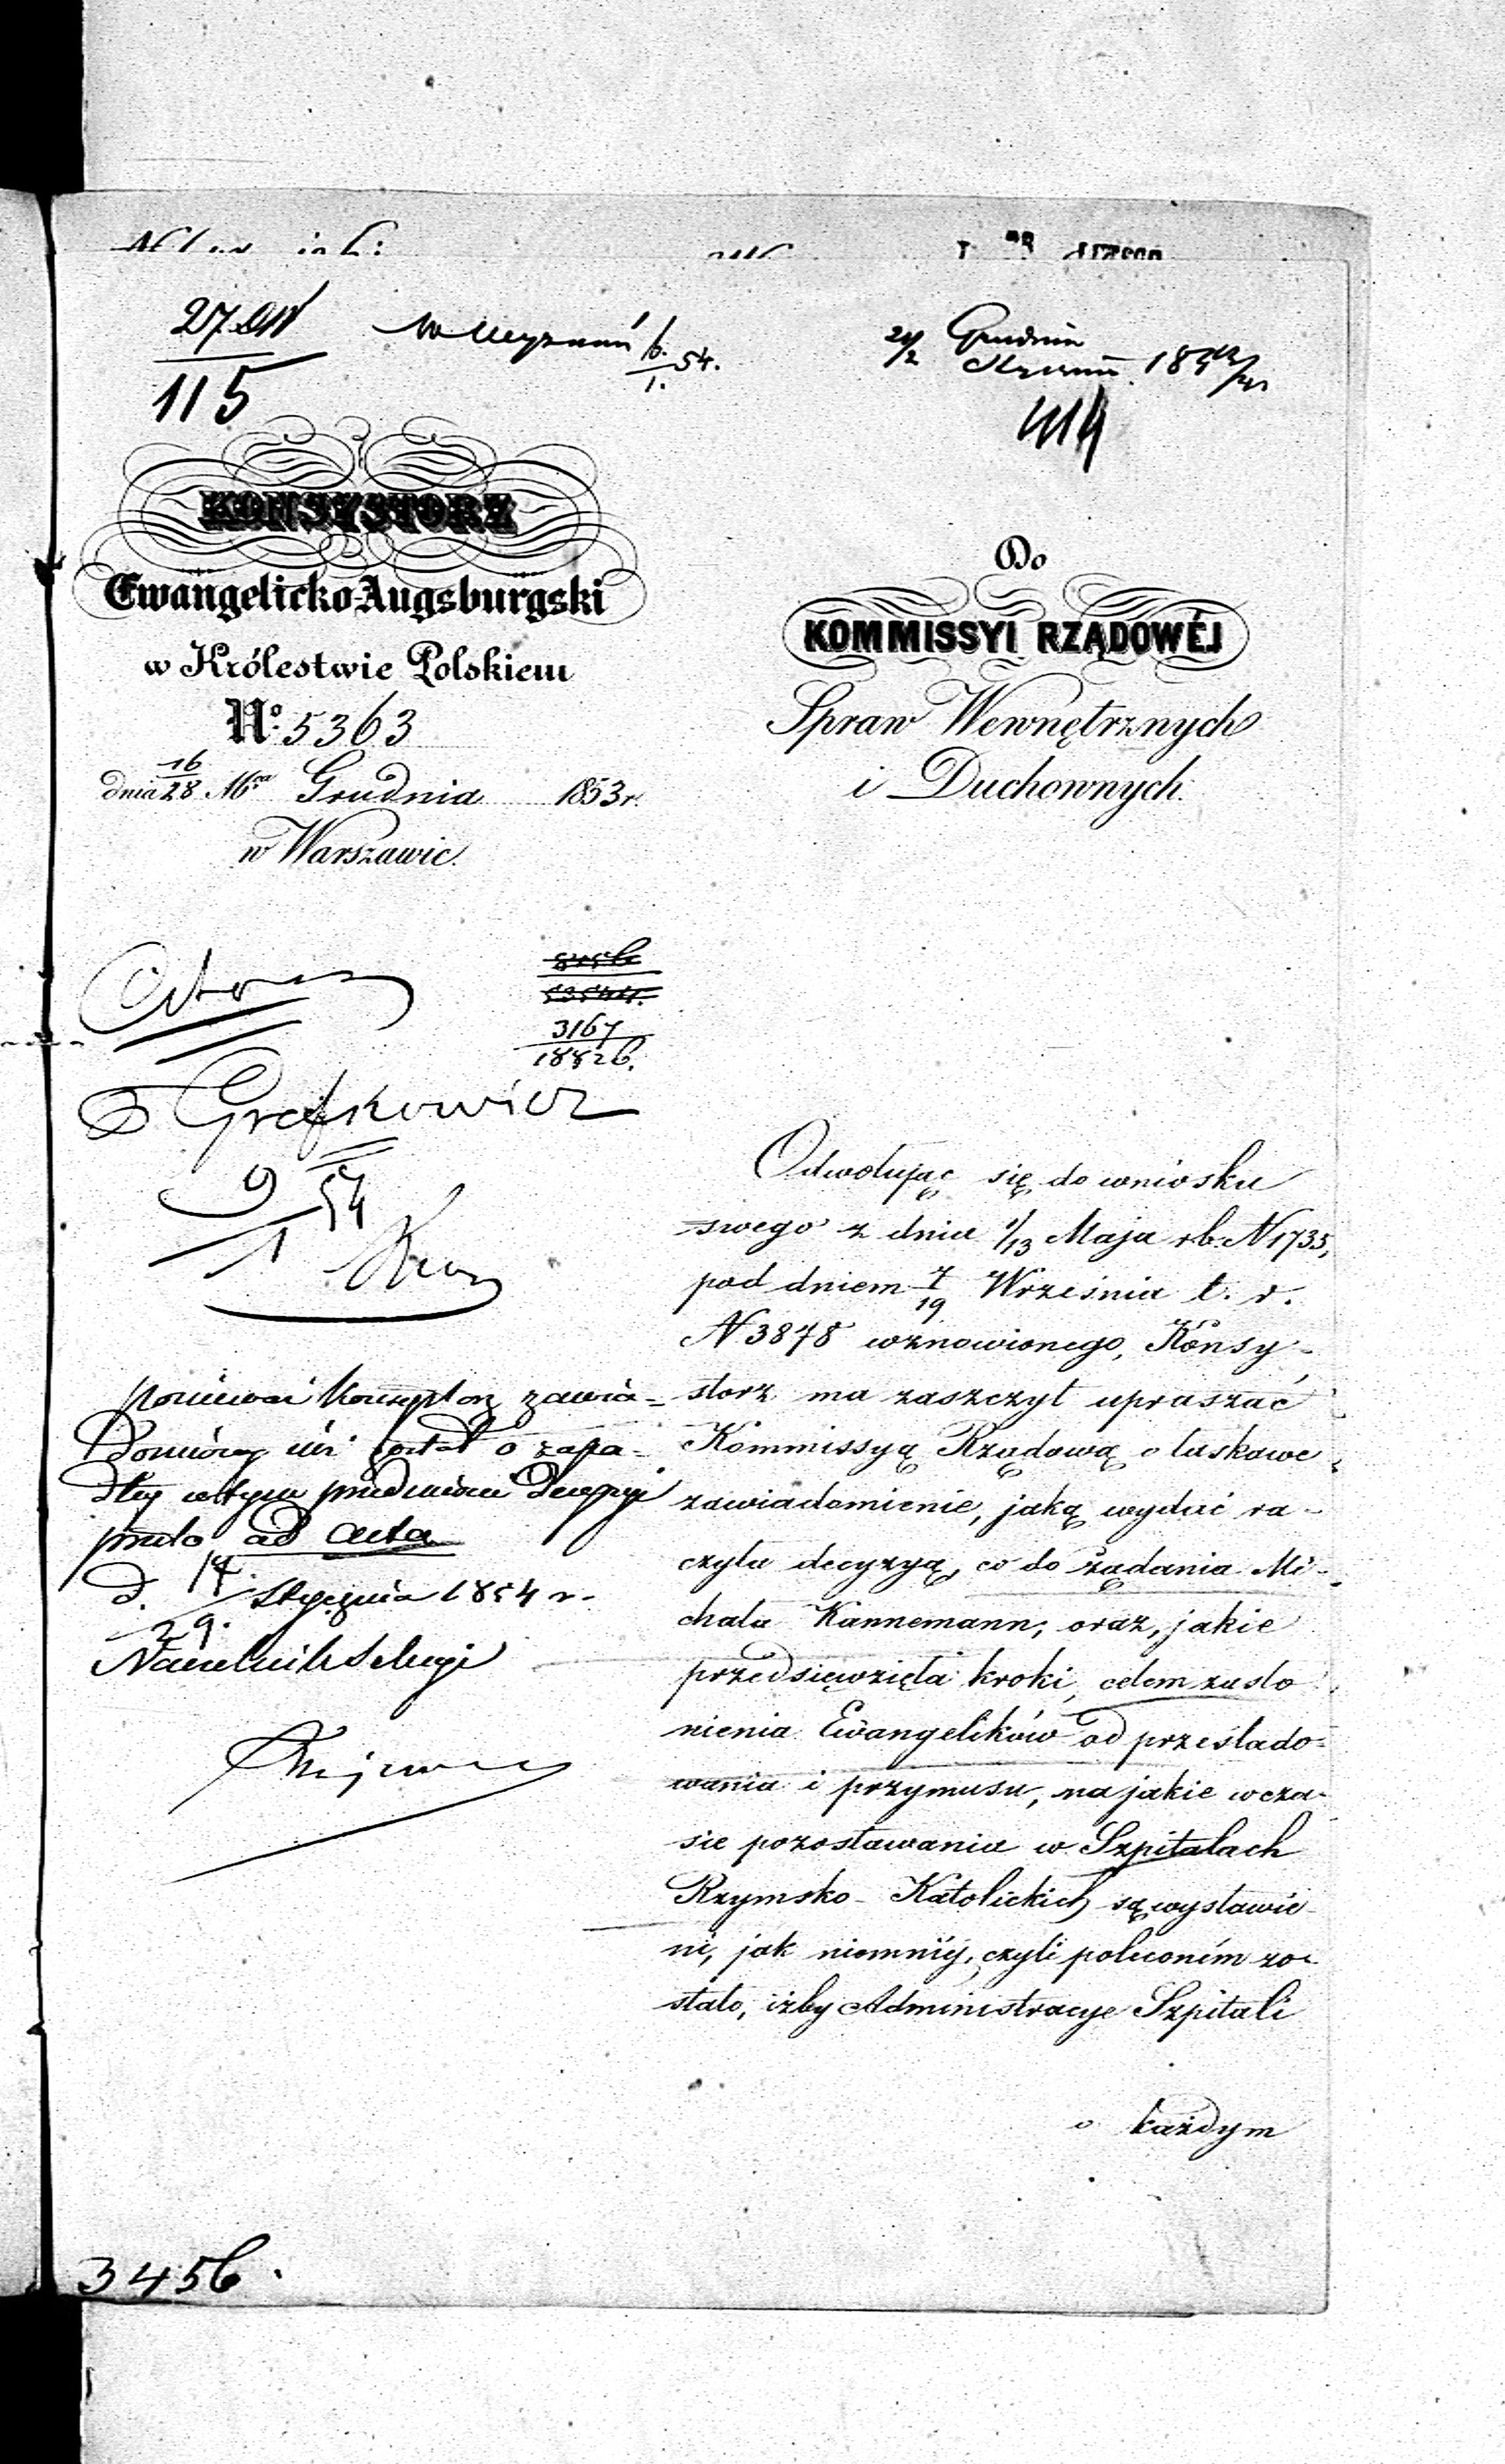 27
115
54.
Grudnia
KONSYSTORZ
Ewangelicko-Augsburgski
w Królestwie Polskiem
No. 5363
dnia 16/28 Mca Grudnia 1853 r.
w Warszawie.
Do
KOMMISSYI RZĄDOWÉJ
Spraw Wewnętrznych
i Duchownych.
3167
18826.
Grefkowicz
9/1 54
Ponieważ Konsystorz zawia-
domiony już został o zapa-
dłey w tym przedmiocie Decyzyi
przeto ad acta
d. 17/29 Stycznia 1854 r.
Naczelnik Sekcyi
Odwołując się do wniosku
swego z dnia 1/13 Maja r. b. N 1735,
pod dniem 7/19 Września t. r.
N 3878 wznowionego, Konsy-
storz ma zaszczyt upraszać
Kommissyą Rządową o łaskawe
zawiadomienie, jaką wydać ra-
czyła decyzyą, co do żądania Mi-
chała Kannemann; oraz, jakie
przedsięwzięła kroki, celem zasło
nienia Ewangelików od prześlado-
wania i przymusu, na jakie w cza-
sie pozostawania w Szpitalach
Rzymsko-Katolickich są wystawie
ni, jak niemniéj, czyli poleconém zo-
stało, iżby Administracye Szpitali
o każdym
3456.